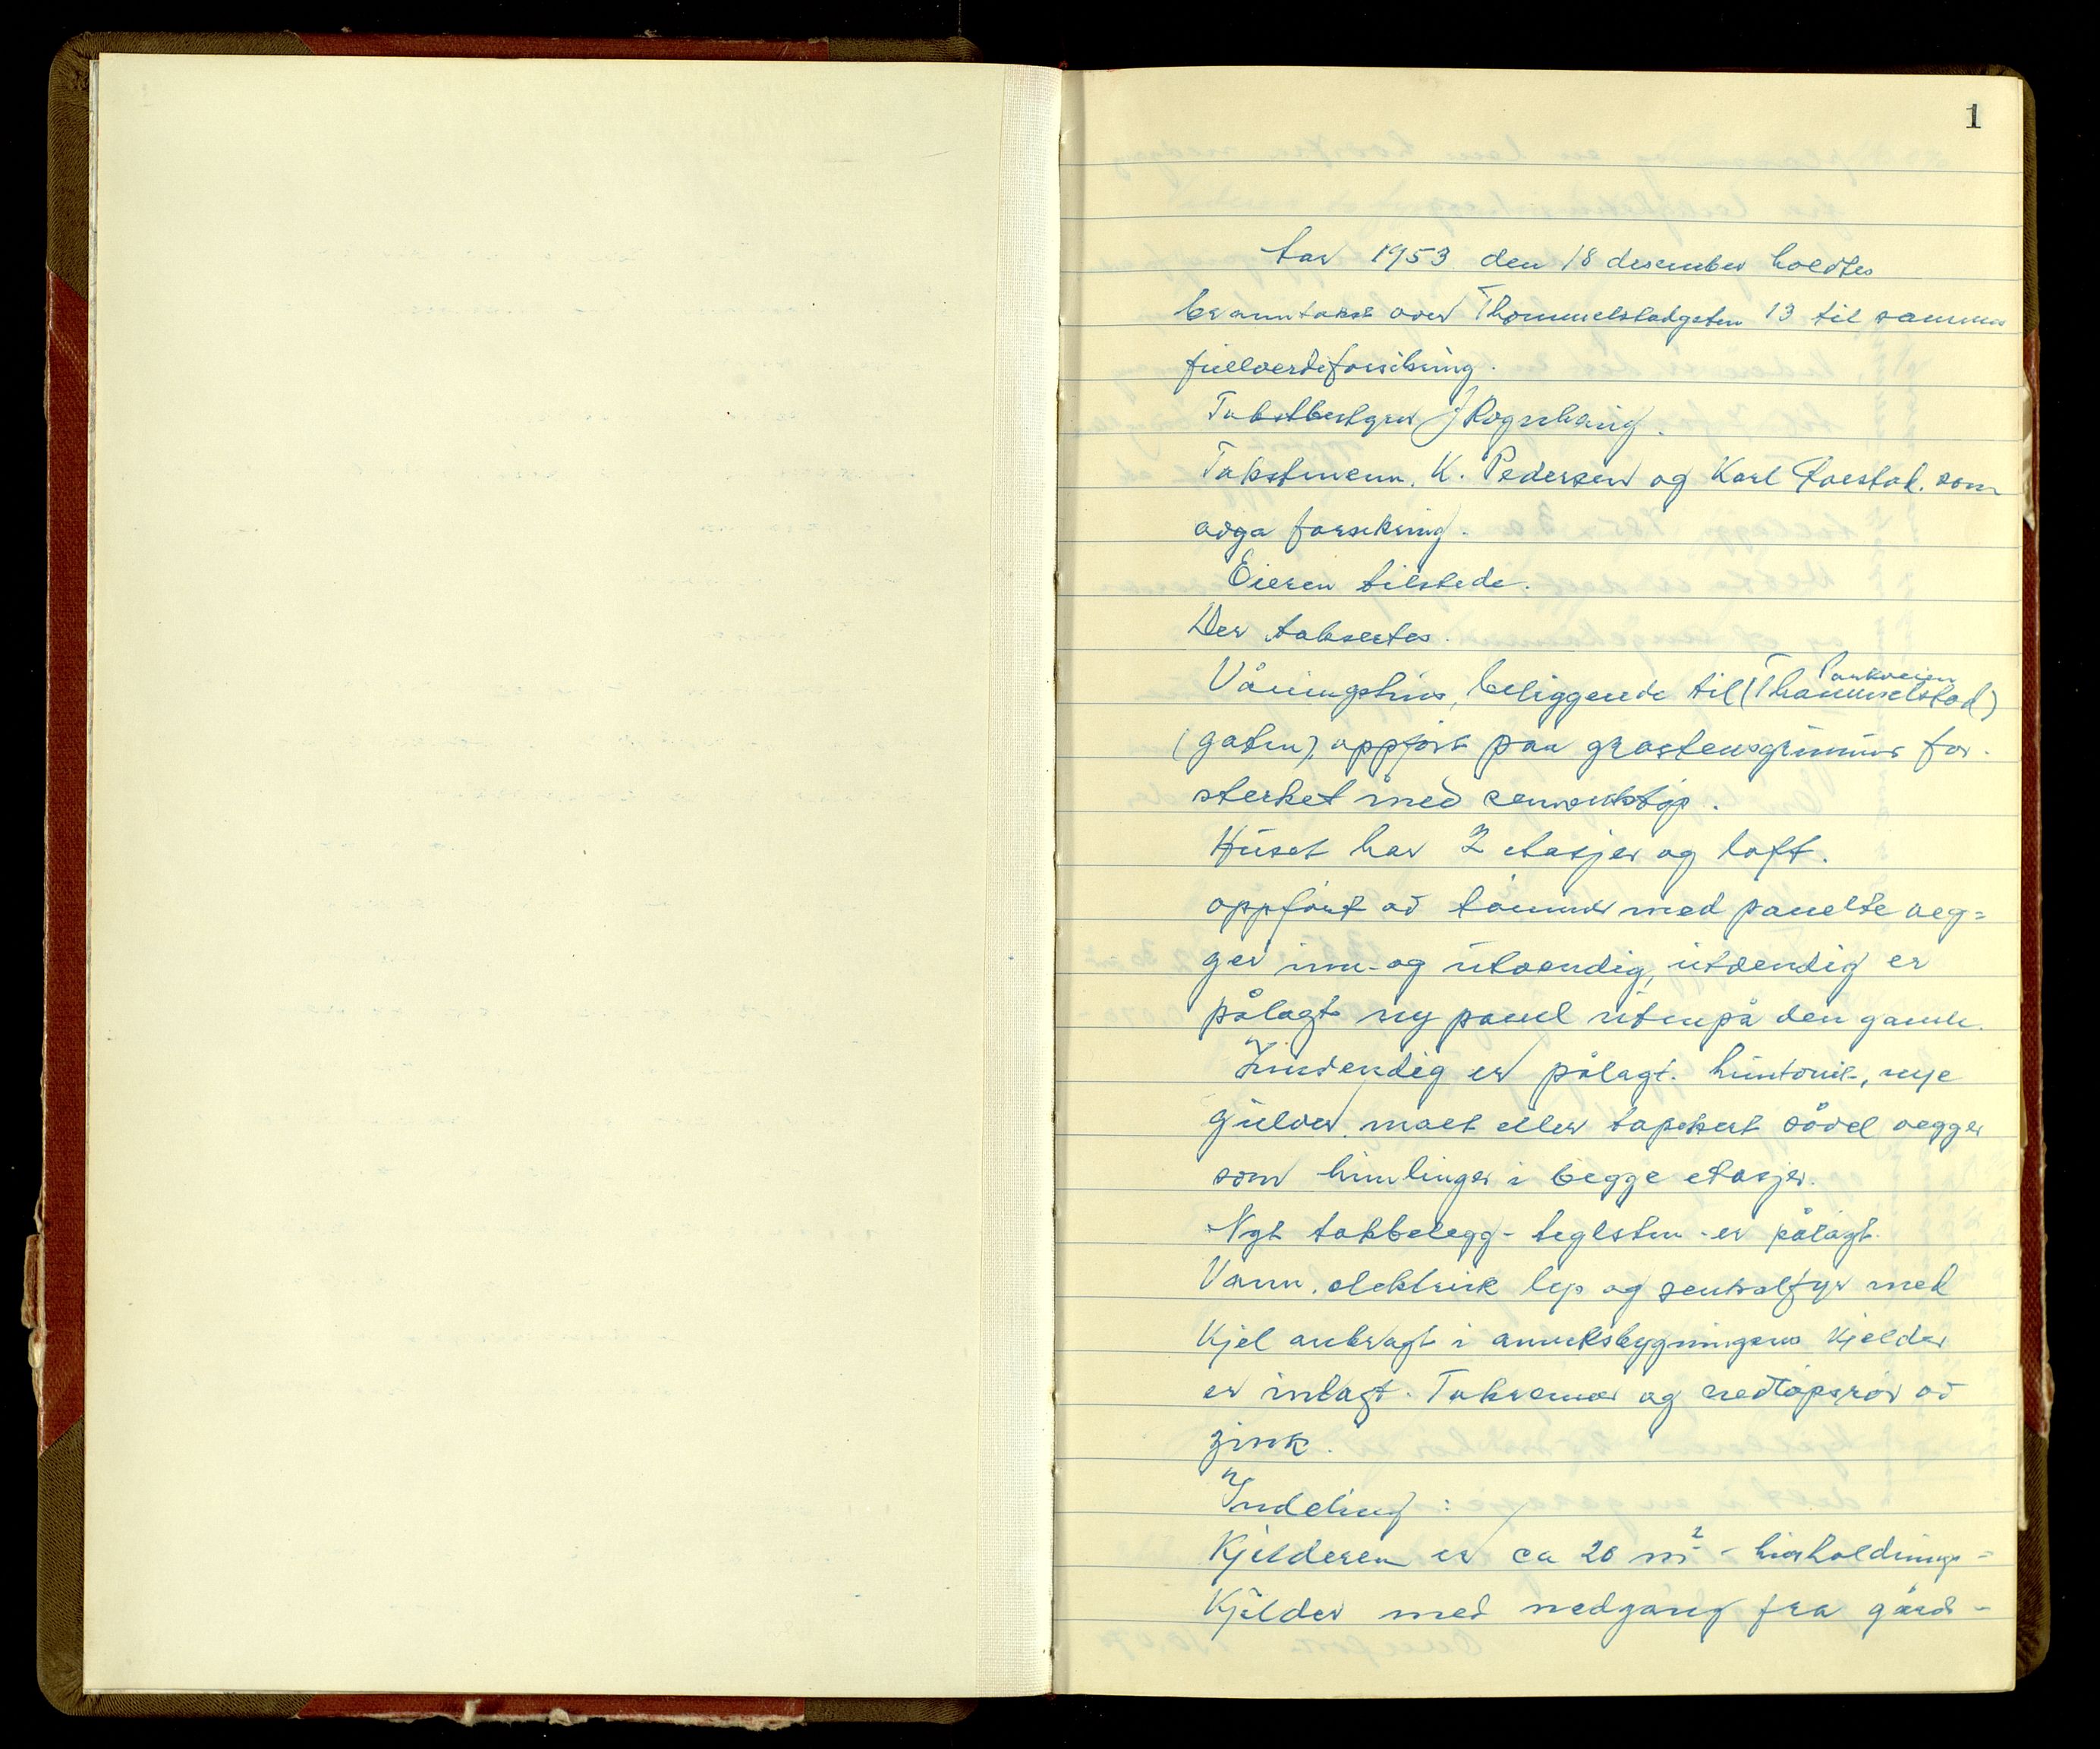 1
Aar 1953 den 18 desember holdtes
branntakst over Thommelstadgaten 13 til samme
fullverdiforsikring.
Takstbestyrer J Rogschaug.
Takstmenn, K. Pedersen og Karl som
avga forsikring.
Eieren tilstede.
Der taksertes.
Våningshus, beliggende til (Thommelstad)
Parkveien
(gaten), oppført paa gråstensgrunnur for-
sterket med sementstøp.
Huset har 2 etasjer og loft.
oppført av tømmer med panelte veg=
ger inn- og utvendig, utvendig er
pålagt ny panel utenpå den gamle.
Innvendig er pålagt. huntonit-, nye
gulver, malt eller tapetsert såvel vegger
som himlinger i begge etasjer.
Nyt takbelegg - teglsten - er pålagt.
Vann, elektrisk lys og sentralfyr med
Kjel anbragt i anneksbygningens Kjelder
er inlagt. Takrenner og nedløpsrør av
zink.
Inndeling :
Kjelderen er ca 20 m² - husholdnings=
Kjelder med nedgang fra gårds-